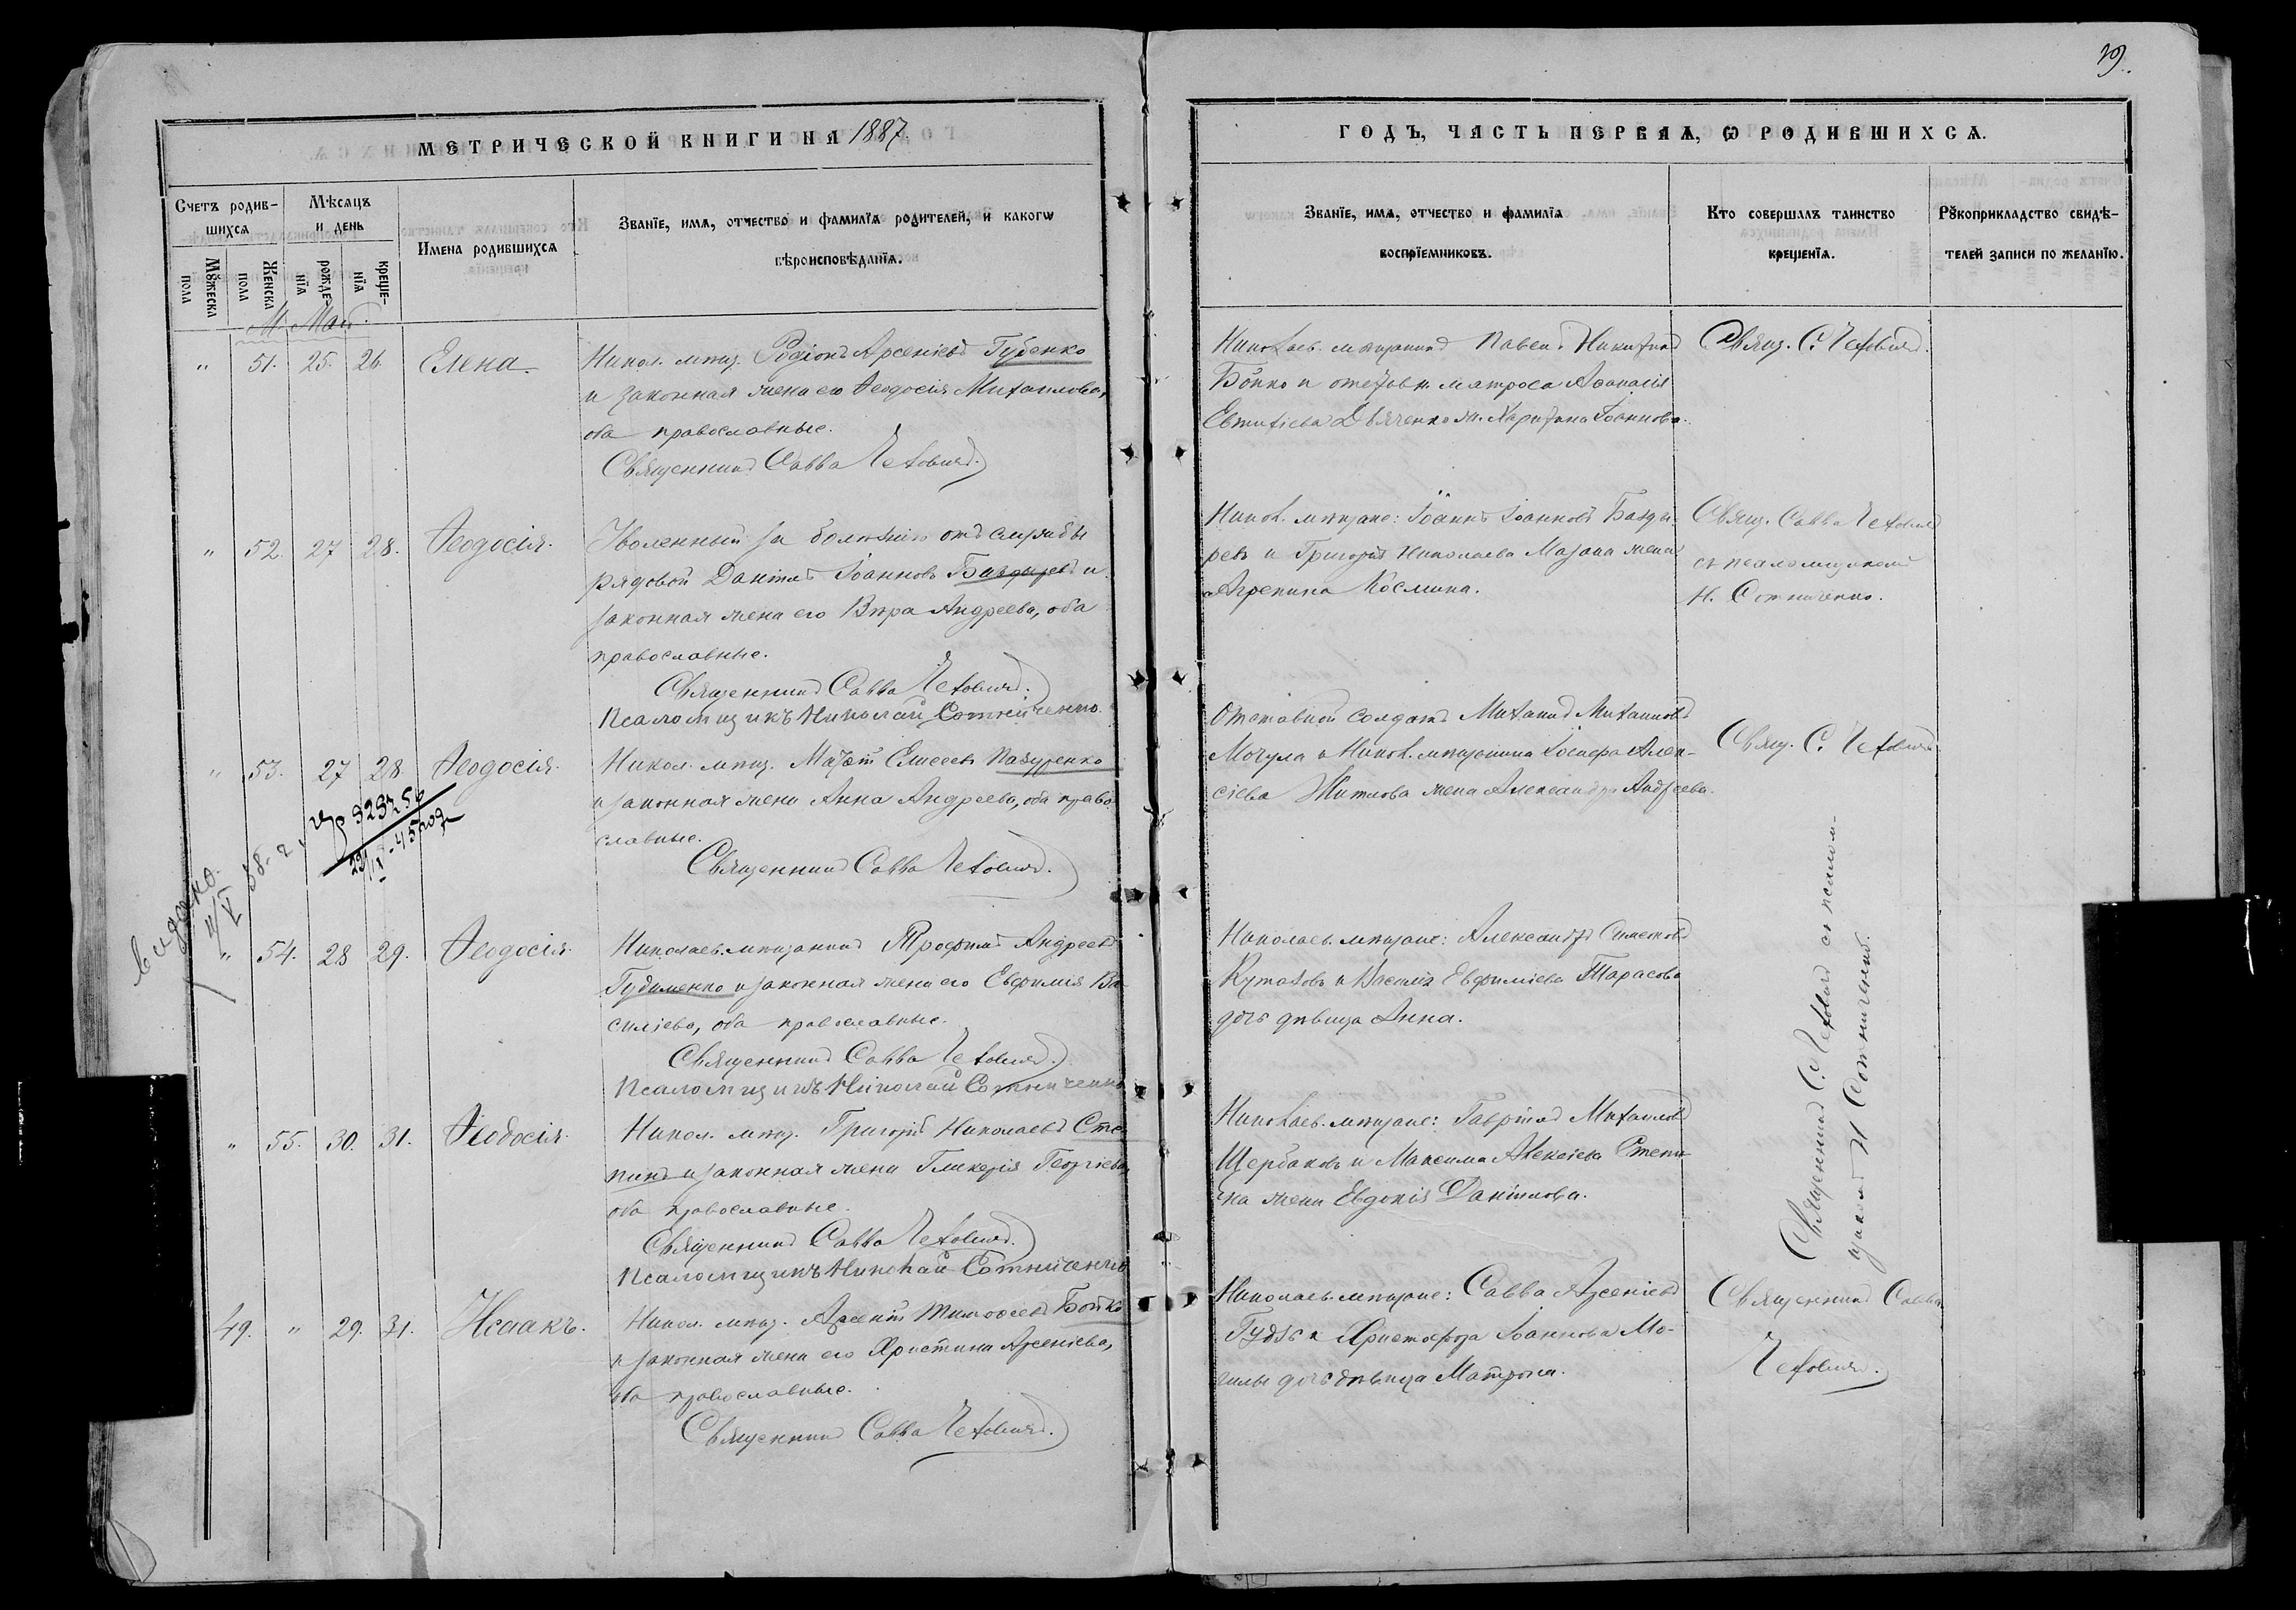 19.
МЕТРИЧЕСКОЙ КНИГИ НА 1887.
ГОДЪ, ЧАСТЬ ПЕРВАѦ, Ѡ РОДИВШИХСѦ.
Счетъ родив-
шихсѧ
Мѣсѧцъ
и день
Мꙋжеска
пола
Женска
пола
рожде-
нїѧ
креще-
нїѧ
Имена родившихсѧ
Званїе, имѧ, отчество и фамилїѧ родителей, и какогѡ
вѣроисповѣданїѧ.
Званїе, имѧ, отчество и фамилїѧ
воспрїемниковъ.
Кто совершалъ таинство
крещенїѧ.
Рꙋкоприкладство свидѣ-
телей записи по желанїю.
М. Май.
" 51. 25. 26. Елена.
Никол. мѣщ. Родіонъ Арсеніевъ Губенко
и законная жена его Ѳеодосія Михаилова,
оба православные.
Священникъ Савва Чеховичъ.
Николаев. мѣщанинъ Павелъ Никитинъ
Бойко и отставн. матроса Аѳанасія
Евтихіева Дьяченко ж. Харитина Іоаннова.
Свящ. С. Чеховичъ.
" 52. 27 28. Ѳеодосія.
Уволенный за болѣзнію отъ службы
рядовой Даніилъ Іоанновъ Баздыревъ и
законная жена его Вѣра Андреева, оба
православные.
Священникъ Савва Чеховичъ.
Псаломщикъ Николай Сотниченко.
Никол. мѣщане: Іоаннъ Іоанновъ Базды-
ревъ и Григорія Николаева Мазана жена
Агрепина Космина.
Свящ. Савва Чеховичъ
съ псаломщикомъ
Н. Сотниченко.
" 53. 27 28. Ѳеодосія.
Никол. мѣщ. Елисеевъ Пазуренко
и законная жена Анна Андреева, оба право-
славные.
Священникъ Савва Чеховичъ.
Отставной солдатъ Михаилъ Михаиловъ
Могула и Никол. мѣщанина Іосифа Алек-
сіева Житлова жена Александра Андреева.
Свящ. С. Чеховичъ.
45 год
Выдано.
V 58 г.
" 54. 28 29. Ѳеодосія.
Николаев. мѣщанинъ Трофимъ Андреевъ
Гудименко и законная жена его Евфимія Ва-
силіева, оба православные.
Священникъ Савва Чеховичъ.
Псаломщикъ Николай Сотниченко
Николаев. мѣщане: Александръ Симеоновъ
Кутовъ и Василія Евфиміева Тарасова
дочь дѣвица Анна.
Священникъ С. Чеховичъ съ псалом-
щикомъ Н Сотниченко.
" 55. 30. 31. Ѳеодосія.
Никол. мѣщ. Григорій Николаевъ Сте-
пинъ и законная жена Гликерія Георгіева,
оба православные.
Священникъ Савва Чеховичъ.
Псаломщикъ Николай Сотниченко
Николаев. мѣщане: Гавріилъ Михаиловъ
Щербаковъ и Максима Алексіева Степи-
на жена Евдокія Даніилова.
49. " 29. 31. Исаакъ.
Никол. мѣщ. Арсеній Тимоѳеевъ Бойко
и законная жена его Христина Арсеніева,
оба православные.
Священникъ Савва Чеховичъ.
Николаев. мѣщане: Савва Арсеніевъ
Гудзь и Христофора Іоаннова Мо-
гилы дочь дѣвица Матрона.
Священникъ Савва
Чеховичъ.